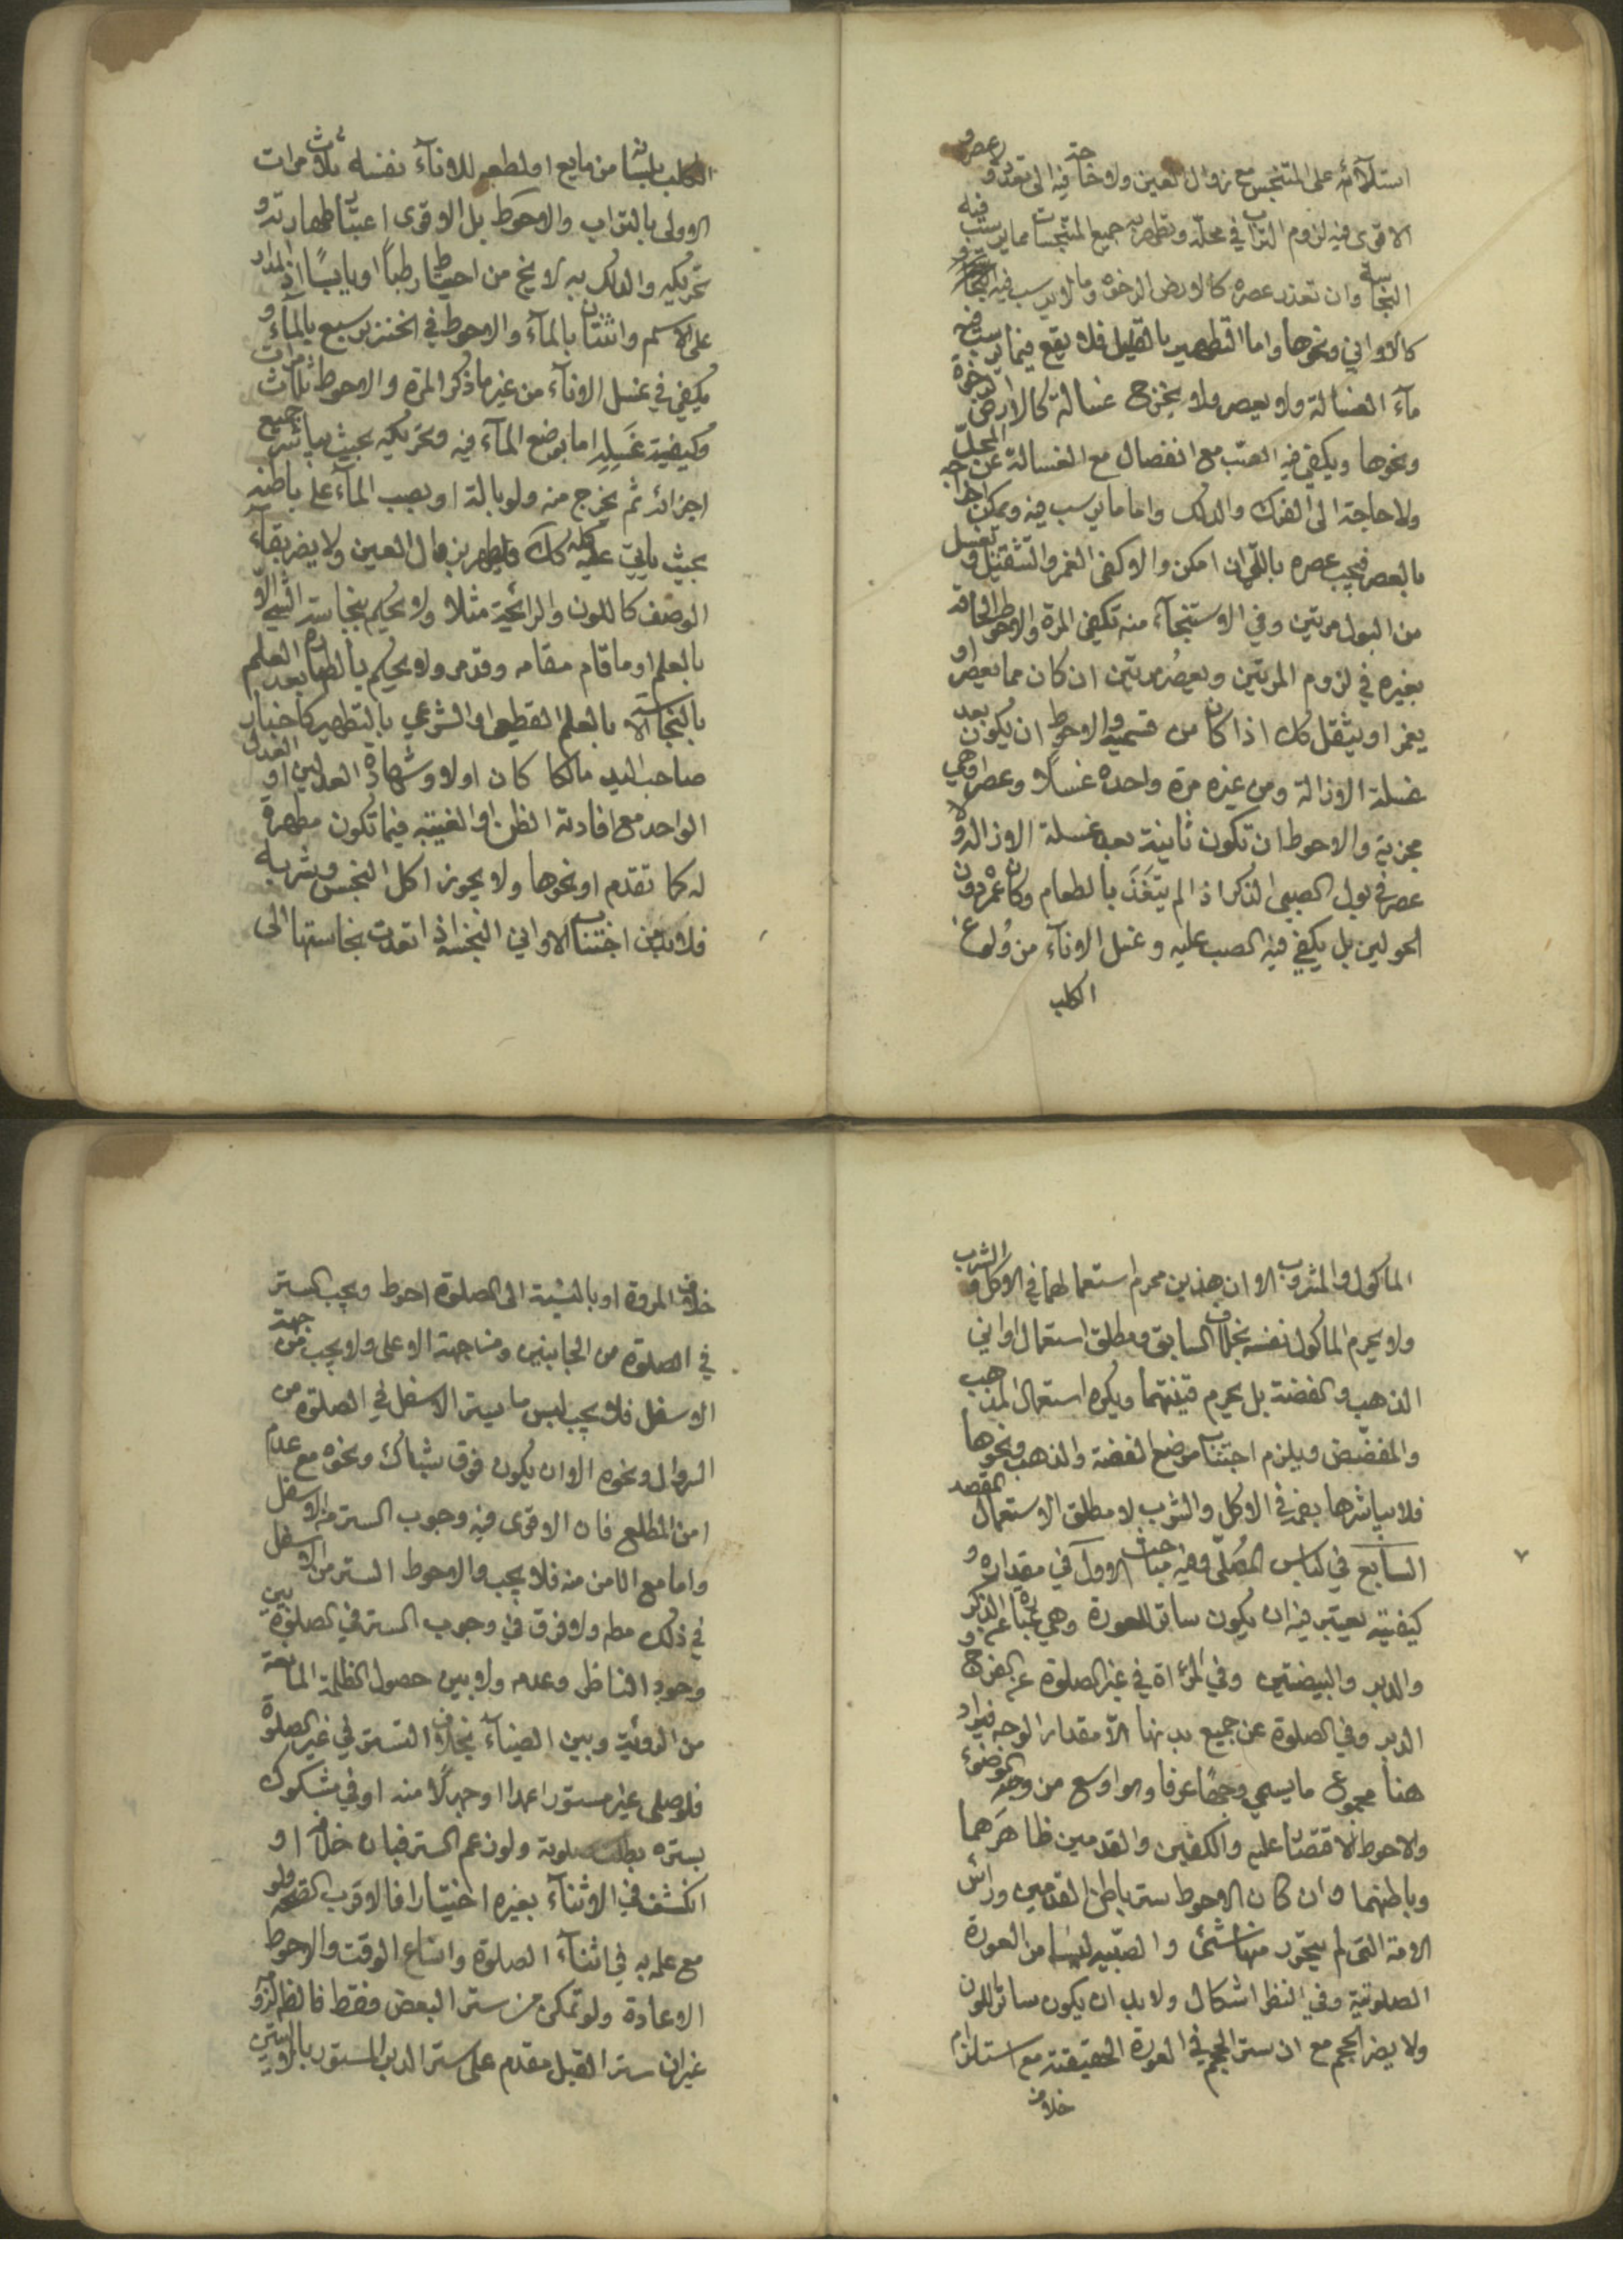 استيلائه على المتنجس مع زوال العين ولا حاجة فيه الى تعدد ولا عصر و
الاقوى فيه لزوم التراب في محله وتطهر به جميع المتنجسات مما يرسب فيه
النجاسة وان تعذر عصره كالارض الرخوة وما لا يرسب فيه
كالاواني ونحوها واما التطهير بالقليل فلا يقع فيما يرسب فيه
ماء الغسالة ولا يعصر ولا يخرج غسالة كالارض الرخوة
ونحوها ويكفي فيه الصب مع انفصال مع الغسالة عن المحل
ولا حاجة الى الفرك والدلك واما ما يرسب فيه ويمكن اخراجه
بالعصر فيجب عصره باللي ان امكن والا كفى الغمز والتثقيل ويغسل
من البول مرتين وفي الاستنجاء منه تكفي المرة والاحوط الحاقه
بغيره في لزوم المرتين ويعصر مرتين ان كان مما يعصر او
يغمز او يثقل كك اذا كان من قسميه والاحوط ان يكون بعد
غسلة الازالة ومن غيره مرة واحدة غسلا وعصرا وهي
مجزية والاحوط ان تكون ثانية بعد غسلة الازالة ولا
عصر في بول الصبي الذكر اذ الم يتغذ بالطعام وكان عمره دون
الحولين بل يكفي فيه الصب عليه وغسل الاناء من ولوغ
الكلب
الكلب بلسانه من مايع او لطعه للاناء نفسه ثلاث مرات
الاولى بالتراب والاحوط بل الاقوى اعتبار طهارته و
تحريكه والدلك به لا يخ من احتياط رطبا او يابسا اذ المدار
على الاسم واثنتان بالماء والاحوط في الخنزير سبع بالماء و
يكفي في غسل الاناء من غير ما ذكر المرة والاحوط ثلاث مرات
وكيفية غسله اما بوضع الماء فيه وتحريكه بحيث يباشر جميع
اجزائه ثم يخرج منه ولو بالة او بصب الماء على باطنه
بحيث ياتي عليه كله كك ويطهر بزوال العين ولا يضر بقاء
الوصف كاللون والرائحة مثلا ولا يحكم بنجاسة الشيء الا
بالعلم او ما قام مقامه وقد مر ولا يحكم بالطهارة بعد العلم
بالنجاسة الا بالعلم القطعي او الشرعي بالتطهير كاخبار
صاحب اليد مالكا كان اولا وشهادة العدلين او العدل
الواحد مع افادته الظن او الغيبة فيما تكون مطهرة
له كما تقدم او نحوها ولا يجوز اكل النجس وشربه
فلابد من اجتناب الاواني النجسة اذا تعدت نجاستها الى
الماكول والمشروب الا ان هذين محرم استعمالهما في الاكل والشرب
ولا يحرم الماكول نفسه بخلاف السابق ومطلق استعمال اواني
الذهب والفضة بل يحرم قنيتهما ويكره استعمال المذهب
والمفضض ويلزم اجتناب موضع الفضة والذهب ونحوها
فلا يباشرها بفمه في الاكل والشرب لا مطلق الاستعمال المقصد
السابع في لباس المصلى وفيه مباحث الاول في مقداره و
كيفيته يعتبر فيه ان يكون ساتر للعورة وهي عبارة عن الذكر
والدبر والبيضتين وفي المرأة في غير الصلوة عن الفرج و
الدبر وفي الصلوة عن جميع بدنها الا مقدار الوجه فيراد
هنا مجموع ما يسمى وجها عرفا وهو اوسع من وجه الوضوء
والاحوط الاقتصار عليه والكفين والقدمين ظاهرهما
وباطنهما وان كان الاحوط ستر باطن القدمين وراس
الامة التي لم يتحرر منها شئ والصبية ليسا من العورة
الصلوتية وفي النظر اشكال ولا بد ان يكون ساتر اللون
ولا يضر الحجم مع ان ستر الحجم في العورة الحقيقية مع استلزام
خلاف
خلاف المروة او بالنسبة الى الصلوة احوط ويجب الستر
في الصلوة من الجانبين ومن جهة الاعلى ولا يجب من جهة
الاسفل فلا يجب لبس ما يستر الاسفل في الصلوة من
السروال ونحوه الا ان يكون فوق شباك ونحوه مع عدم
امن المطلع فان الاقوى فيه وجوب الستر من الاسفل
واما مع الامن منه فلا يجب والاحوط الستر من الاسفل
في ذلك مطم ولا فرق في وجوب الستر في الصلوة بين
وجود الناظر وعدمه ولا بين حصول الظلمة المانعة
من الرؤية وبين الضياء بخلاف التستر في غير الصلوة
فلو صلى غير مستور اعمدا او جهلا منه او في مشكوك
بستره بطلت صلوته ولو زعم الستر فبان خلافه او
انكشف في الاثناء بغيره اختيارا فالاقرب الصحة ولو
مع علمه به في اثناء الصلوة واتساع الوقت والاحوط
الاعادة ولو تمكن من ستر البعض فقط فالظم لزومه
غير ان ستر القبل مقدم على ستر الدبر المستور بالاليتين